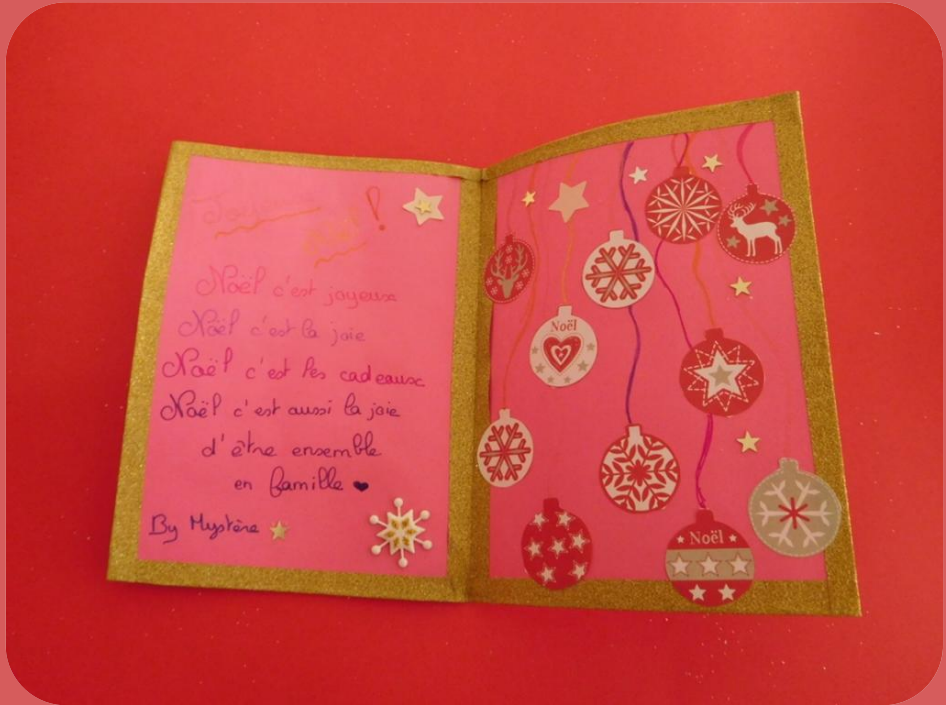 Joyeux
Noël !
Noël c'est joyeux
Noël c'est la joie
Noël c'est les cadeaux
Noël c'est aussi la joie
d'être ensemble
en famille ♥
By Mystère
Noël
Noël